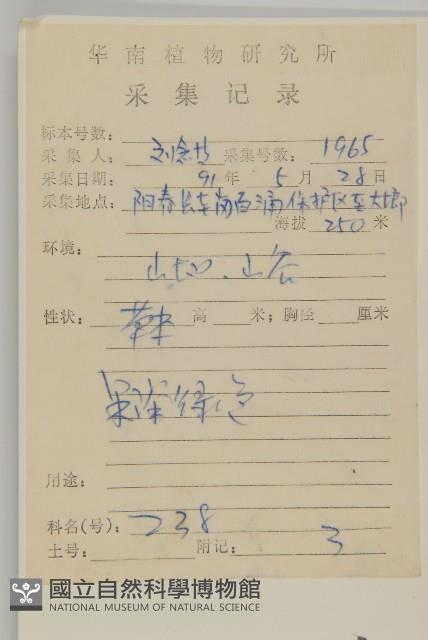 华南植物研究所
采集记录
标本号数：
采集人：刘念 采集号数：1965
采集日期：91年5月28日
采集地点：阳春 百涌保护区至大
海拔250米
环境：山地、山谷
性状：草本 高 米；胸径 厘米
果深绿色
用途：
科名(号)：238
土号： 附记：3
國立自然科學博物館
NATIONAL MUSEUM OF NATURAL SCIENCE